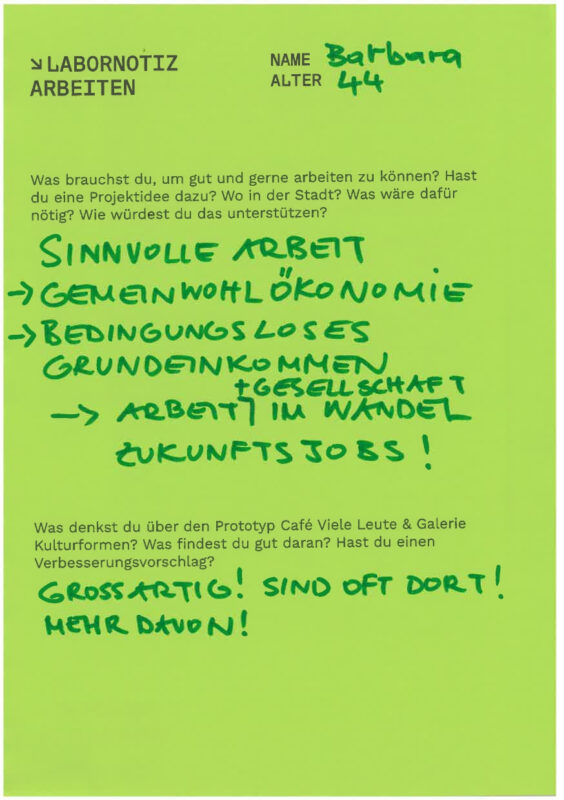 ↘ LABORNOTIZ
ARBEITEN
NAME Barbara
ALTER 44
Was brauchst du, um gut und gerne arbeiten zu können? Hast
du eine Projektidee dazu? Wo in der Stadt? Was wäre dafür
nötig? Wie würdest du das unterstützen?
SINNVOLLE ARBEIT
→ GEMEINWOHLÖKONOMIE
→ BEDINGUNGSLOSES
GRUNDEINKOMMEN
+ GESELLSCHAFT
→ ARBEIT IM WANDEL
ZUKUNFTSJOBS!
Was denkst du über den Prototyp Café Viele Leute & Galerie
Kulturformen? Was findest du gut daran? Hast du einen
Verbesserungsvorschlag?
GROSSARTIG! SIND OFT DORT!
MEHR DAVON!